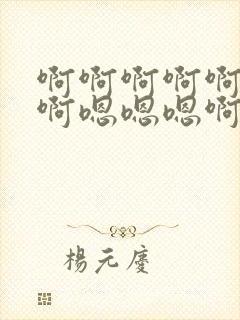 啊啊啊啊啊
啊嗯嗯嗯啊
楊元慶